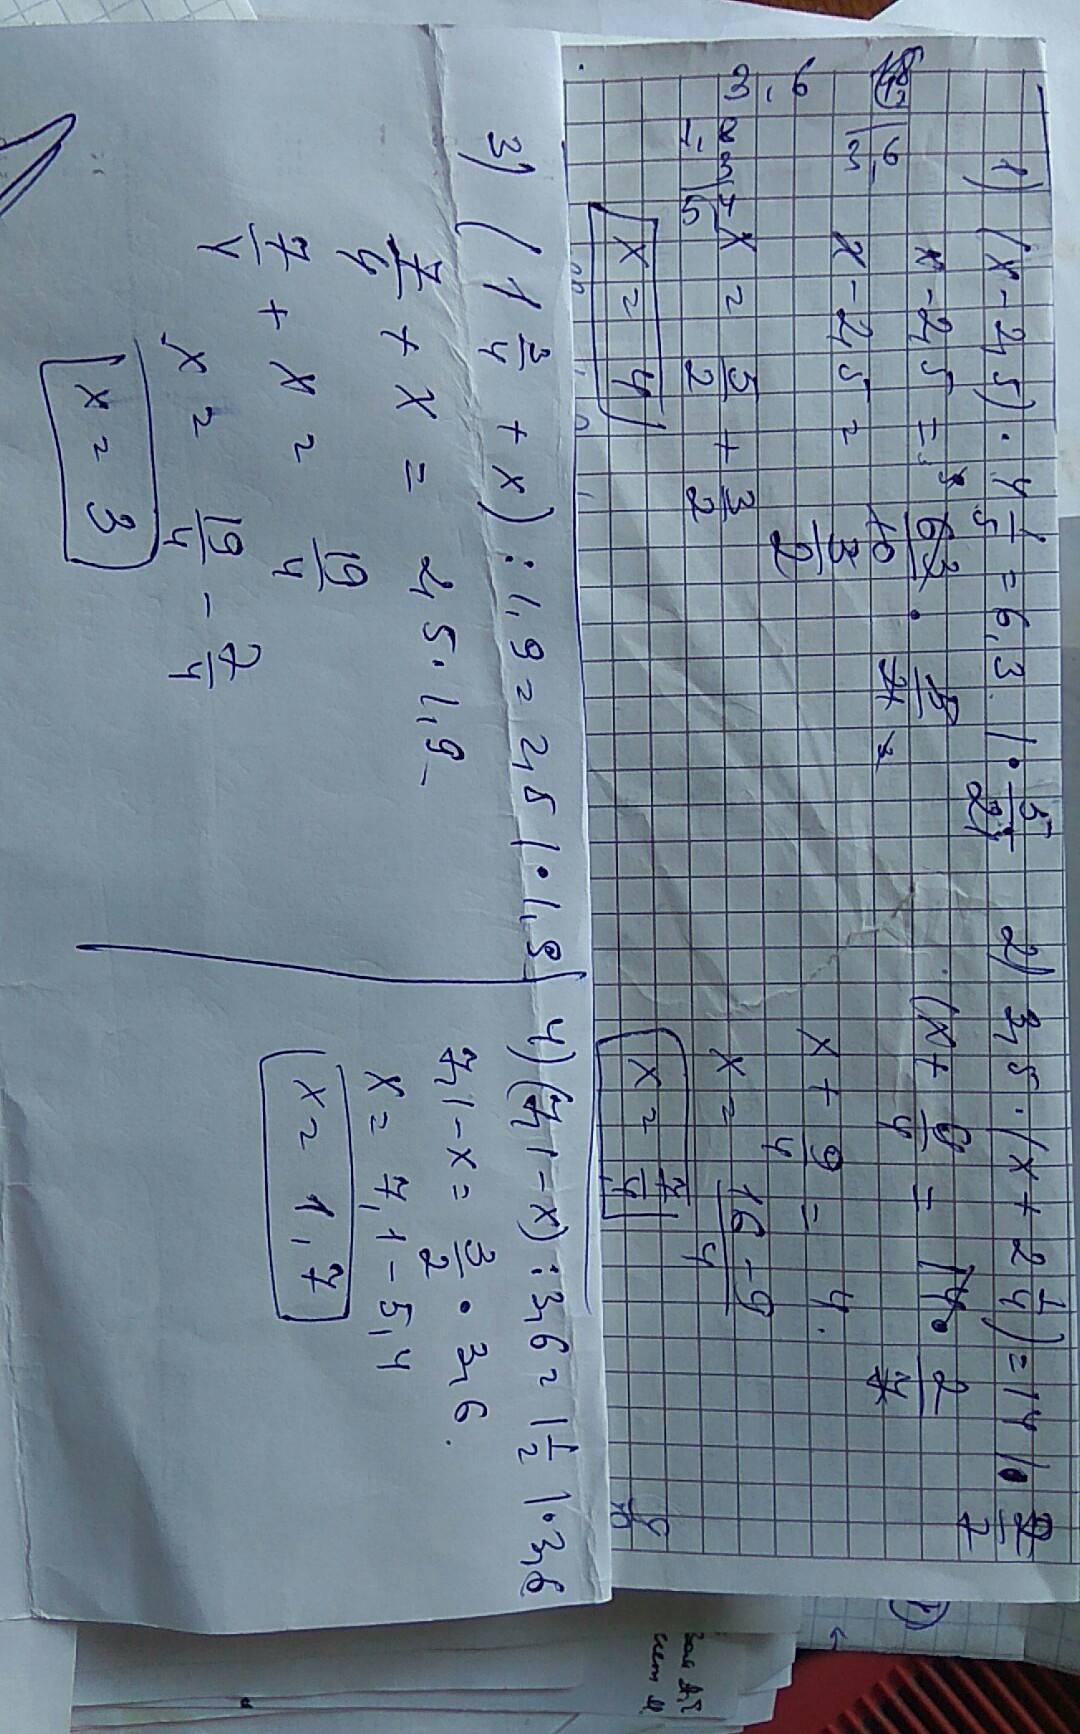 1) (x - 2,5) · 4 1/5 = 6,3 | · 5/21
x - 2,5 = 63/10 · 5/21
x - 2,5 = 3/2
x = 5/2 + 3/2
x = 4
3,6
1,8
3
5,4
3,6
2) 3,5 · (x + 2 1/4) = 14 | · 2/7
(x + 9/4 = 14 · 2/7
x + 9/4 = 4.
x = 16 - 9/4
x = 7/4
3) (1 3/4 + x) : 1,9 = 2,5 | · 1,9
7/4 + x = 2,5 · 1,9
7/4 + x = 19/4
x = 19/4 - 7/4
x = 3
4) (7,1 - x) : 3,6 = 1 1/2 | · 3,6
7,1 - x = 3/2 · 3,6.
x = 7,1 - 5,4
x = 1,7